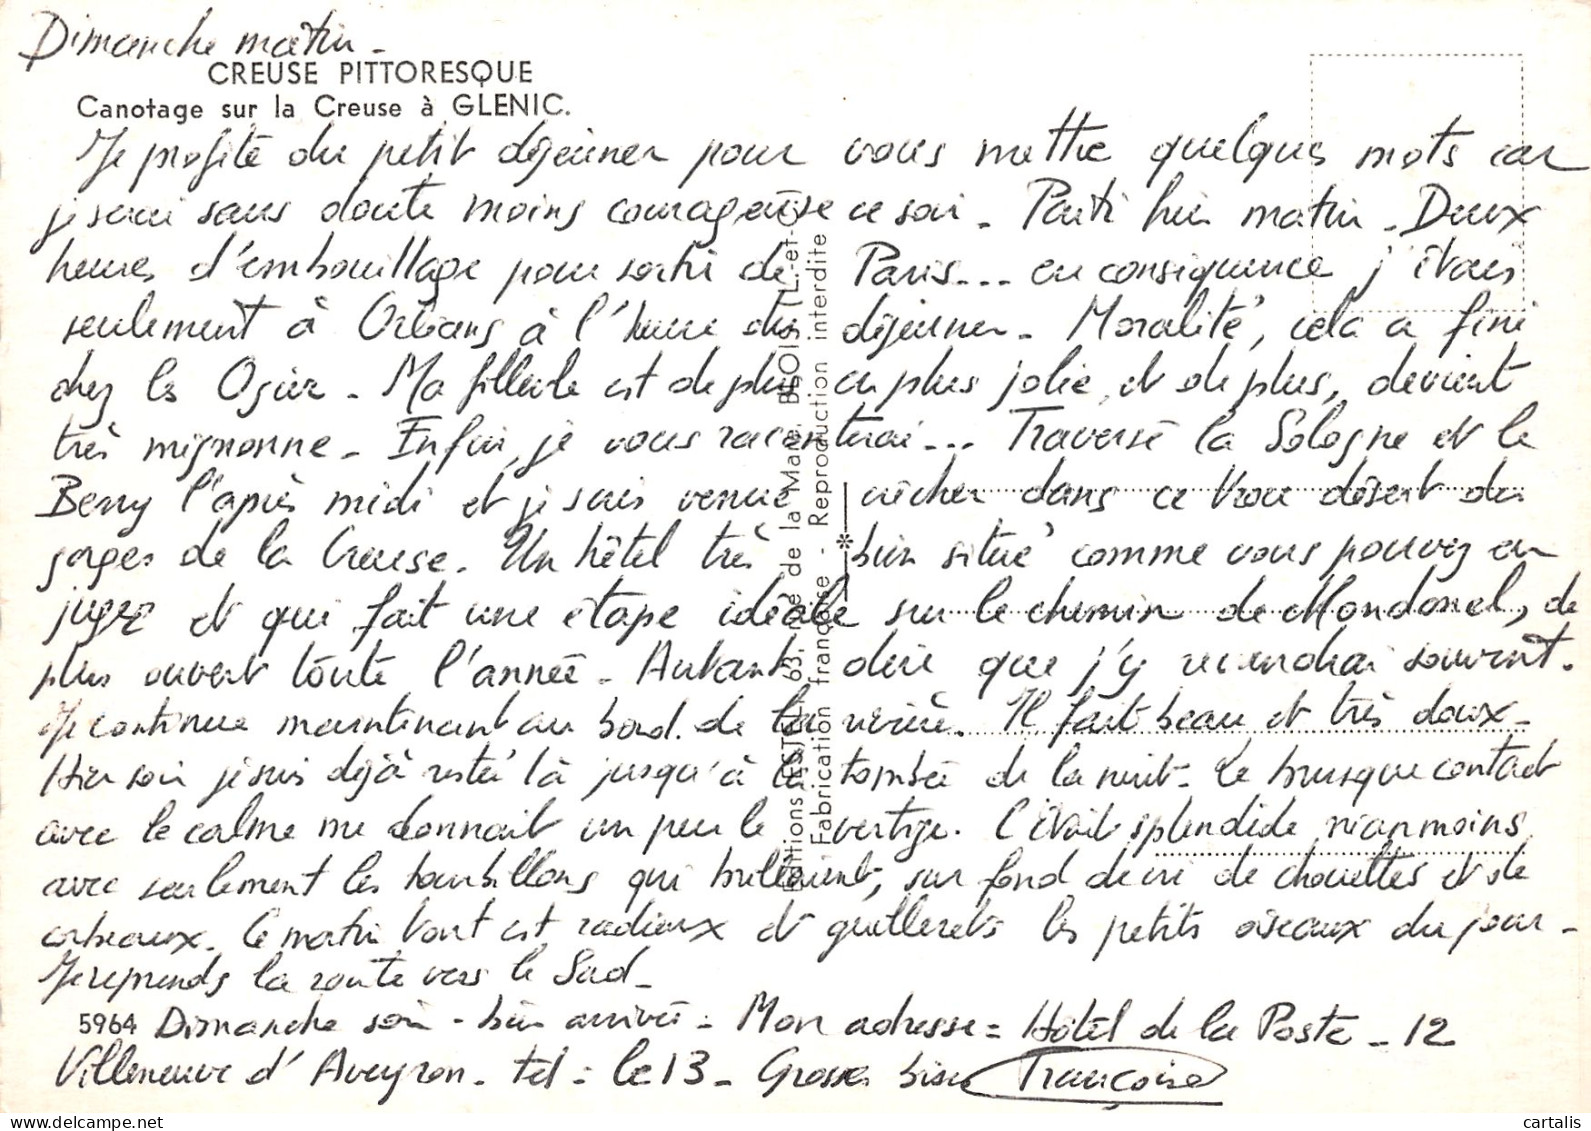 Dimanche matin -
CREUSE PITTORESQUE
Canotage sur la Creuse à GLENIC.
Je profite du petit déjeuner pour vous mettre quelques mots car
je serai sans doute moins courageuse ce soir - Parti hier matin - Deux
heures d'embouillage pour sortir de Paris... en conséquence j'étais
seulement à Orléans à l'heure du déjeuner - Moralité, cela a fini
chez les Ogier - Ma filleule est de plus en plus jolie, et de plus, devient
très mignonne - Enfin, je vous raconterai... Traversé la Sologne et le
Berry l'après midi et je suis venue nicher dans ce trou désert des
gorges de la Creuse. Un hôtel très bien situé comme vous pouvez en
juger et qui fait une étape idéale sur le chemin de Mondonel, de
plus ouvert toute l'année - Autant dire que j'y reviendrai souvent.
Je continue maintenant au bord de la rivière. Il fait beau et très doux -
Hier soir je suis déjà restée là jusqu'à la tombée de la nuit - Le brusque contact
avec le calme me donnait un peu le vertige. C'était splendide néanmoins
avec seulement les tourbillons qui brillaient, sur fond de cri de chouettes et de
corbeaux. Ce matin tout est radieux et guillerets les petits oiseaux du jour -
Je reprends la route vers le Sud -
5964 Dimanche soir - bien arrivée - Mon adresse = Hôtel de la Poste - 12
Villeneuve d'Aveyron - tel = le 13 - Grosses bises Françoise
Editions NESTEL 63, rue de la Mare BLOIS (L.-et-C.)
Fabrication française - Reproduction interdite
cartalis
www.delcampe.net